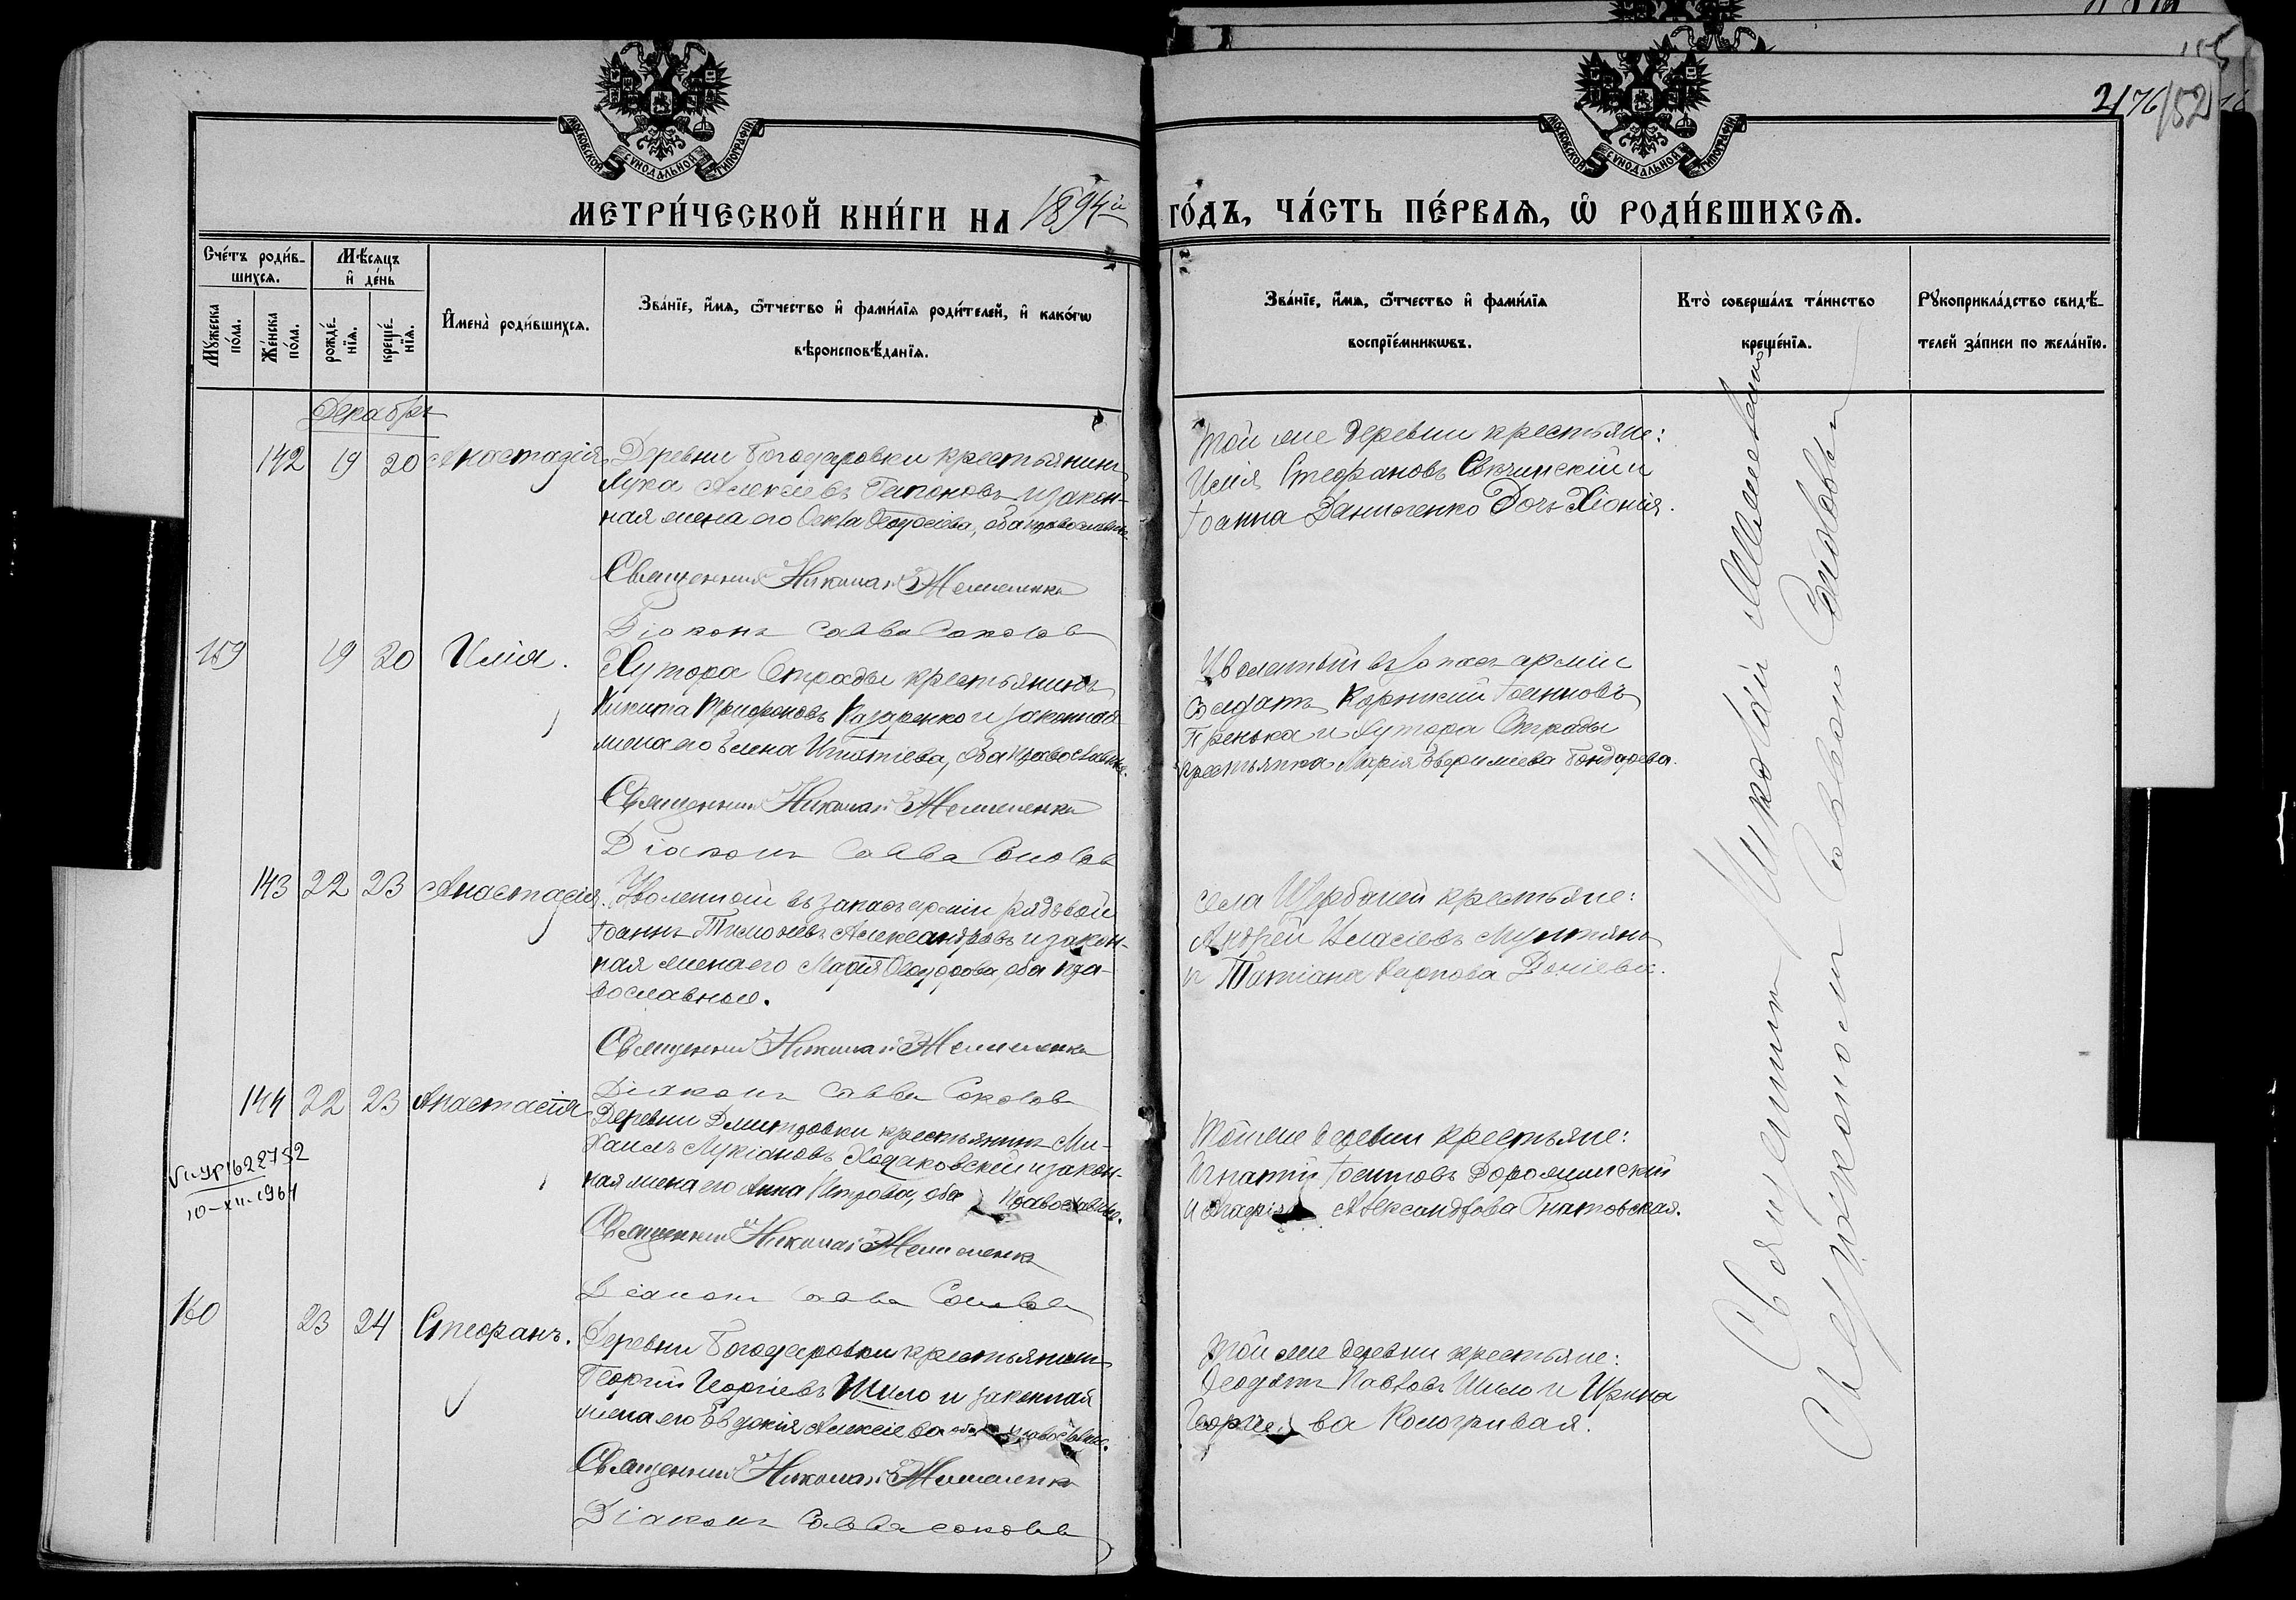 2176 152
МОСКОВСКОЙ СѴНОДАЛЬНОЙ ТИПОГРАФІИ
МОСКОВСКОЙ СѴНОДАЛЬНОЙ ТИПОГРАФІИ
МЕТРИ́ЧЕСКОЙ КНИ́ГИ НА 1894й ГО́ДЪ, ЧА́СТЬ ПЕ́РВАѦ, Ѽ РОДИ́ВШИХСѦ.
Сче́тъ роди́в-
шихсѧ.
Мꙋ́жеска
по́ла.
Же́нска
по́ла.
Мѣ́сѧцъ
и҆ де́нь
рожде́-
нїѧ.
креще́-
нїѧ.
И҆мена̀ роди́вшихсѧ.
Зва́нїе, и҆́мѧ, ѻ҆́тчество и҆ фами́лїѧ роди́телей, и҆ како́гѡ
вѣроисповѣ́данїѧ.
Зва́нїе, и҆́мѧ, ѻ҆́тчество и҆ фами́лїѧ
воспрїе́мникѡвъ.
Кто̀ соверша́лъ та́инство
креще́нїѧ.
Рꙋкоприкла́дство свидѣ́-
телей за́писи по жела́нїю.
Декабрь
142 19 20 Анастасія
Деревни Богодаровки крестьянинъ
Лука Алексіевъ Гапоновъ и закон-
ная жена его Ѳекла Ѳедосіева, оба православн.
Священникъ Николай Мемененко
Діаконъ Савва Соколовъ
Той же деревни крестьяне:
Илія Стефановъ и
Іоанна Даниленко дочь Хіонія.
159 19 20 Илія.
Хутора Отрады крестьянинъ
Никита Трифоновъ Назаренко и законная
жена его Елена Игнатіева, оба православные.
Священникъ Николай Мемененко
Діаконъ Савва Соколовъ
Уволенный въ запасъ арміи
солдатъ Корнилій Іоанновъ
Гренька и хутора Отрады
крестьянка Марія Евфиміева Бондарева.
143 22 23 Анастасія.
Уволенной въ запасъ арміи рядовой
Іоаннъ Тимофіевъ Александровъ и закон-
ная жена его Марія Ѳеодорова, оба пра-
вославные.
Священникъ Николай Мемененко
Діаконъ Савва Соколовъ
села Щербаней крестьяне:
Андрей Власіевъ Мунтянъ
и Татіана Карпова
144 22 23 Анастасія
Деревни Дмитровки крестьянинъ Ми-
хаилъ Лукіановъ Ходаковскій и закон-
ная жена его Анна Петрова, оба православные.
Священникъ Николай Мемененко
Діаконъ Савва Соколовъ
Той же деревни крестьяне:
Игнатій Іосифовъ
и Агафія Александрова Гнатовская.
1622752
10-XII-1964
160 23 24 Стефанъ.
Деревни Богодаровки крестьянинъ
Георгій Георгіевъ Шило и законная
жена его Евдокія Алексіева оба православные.
Священникъ Николай Мемененко
Діаконъ Савва Соколовъ
Той же деревни крестьяне:
Ѳеодотъ Павловъ Шило и Ирина
Георгіева Кологривая.
Священникъ Николай Мемененко
съ діакономъ Саввою Соколовымъ